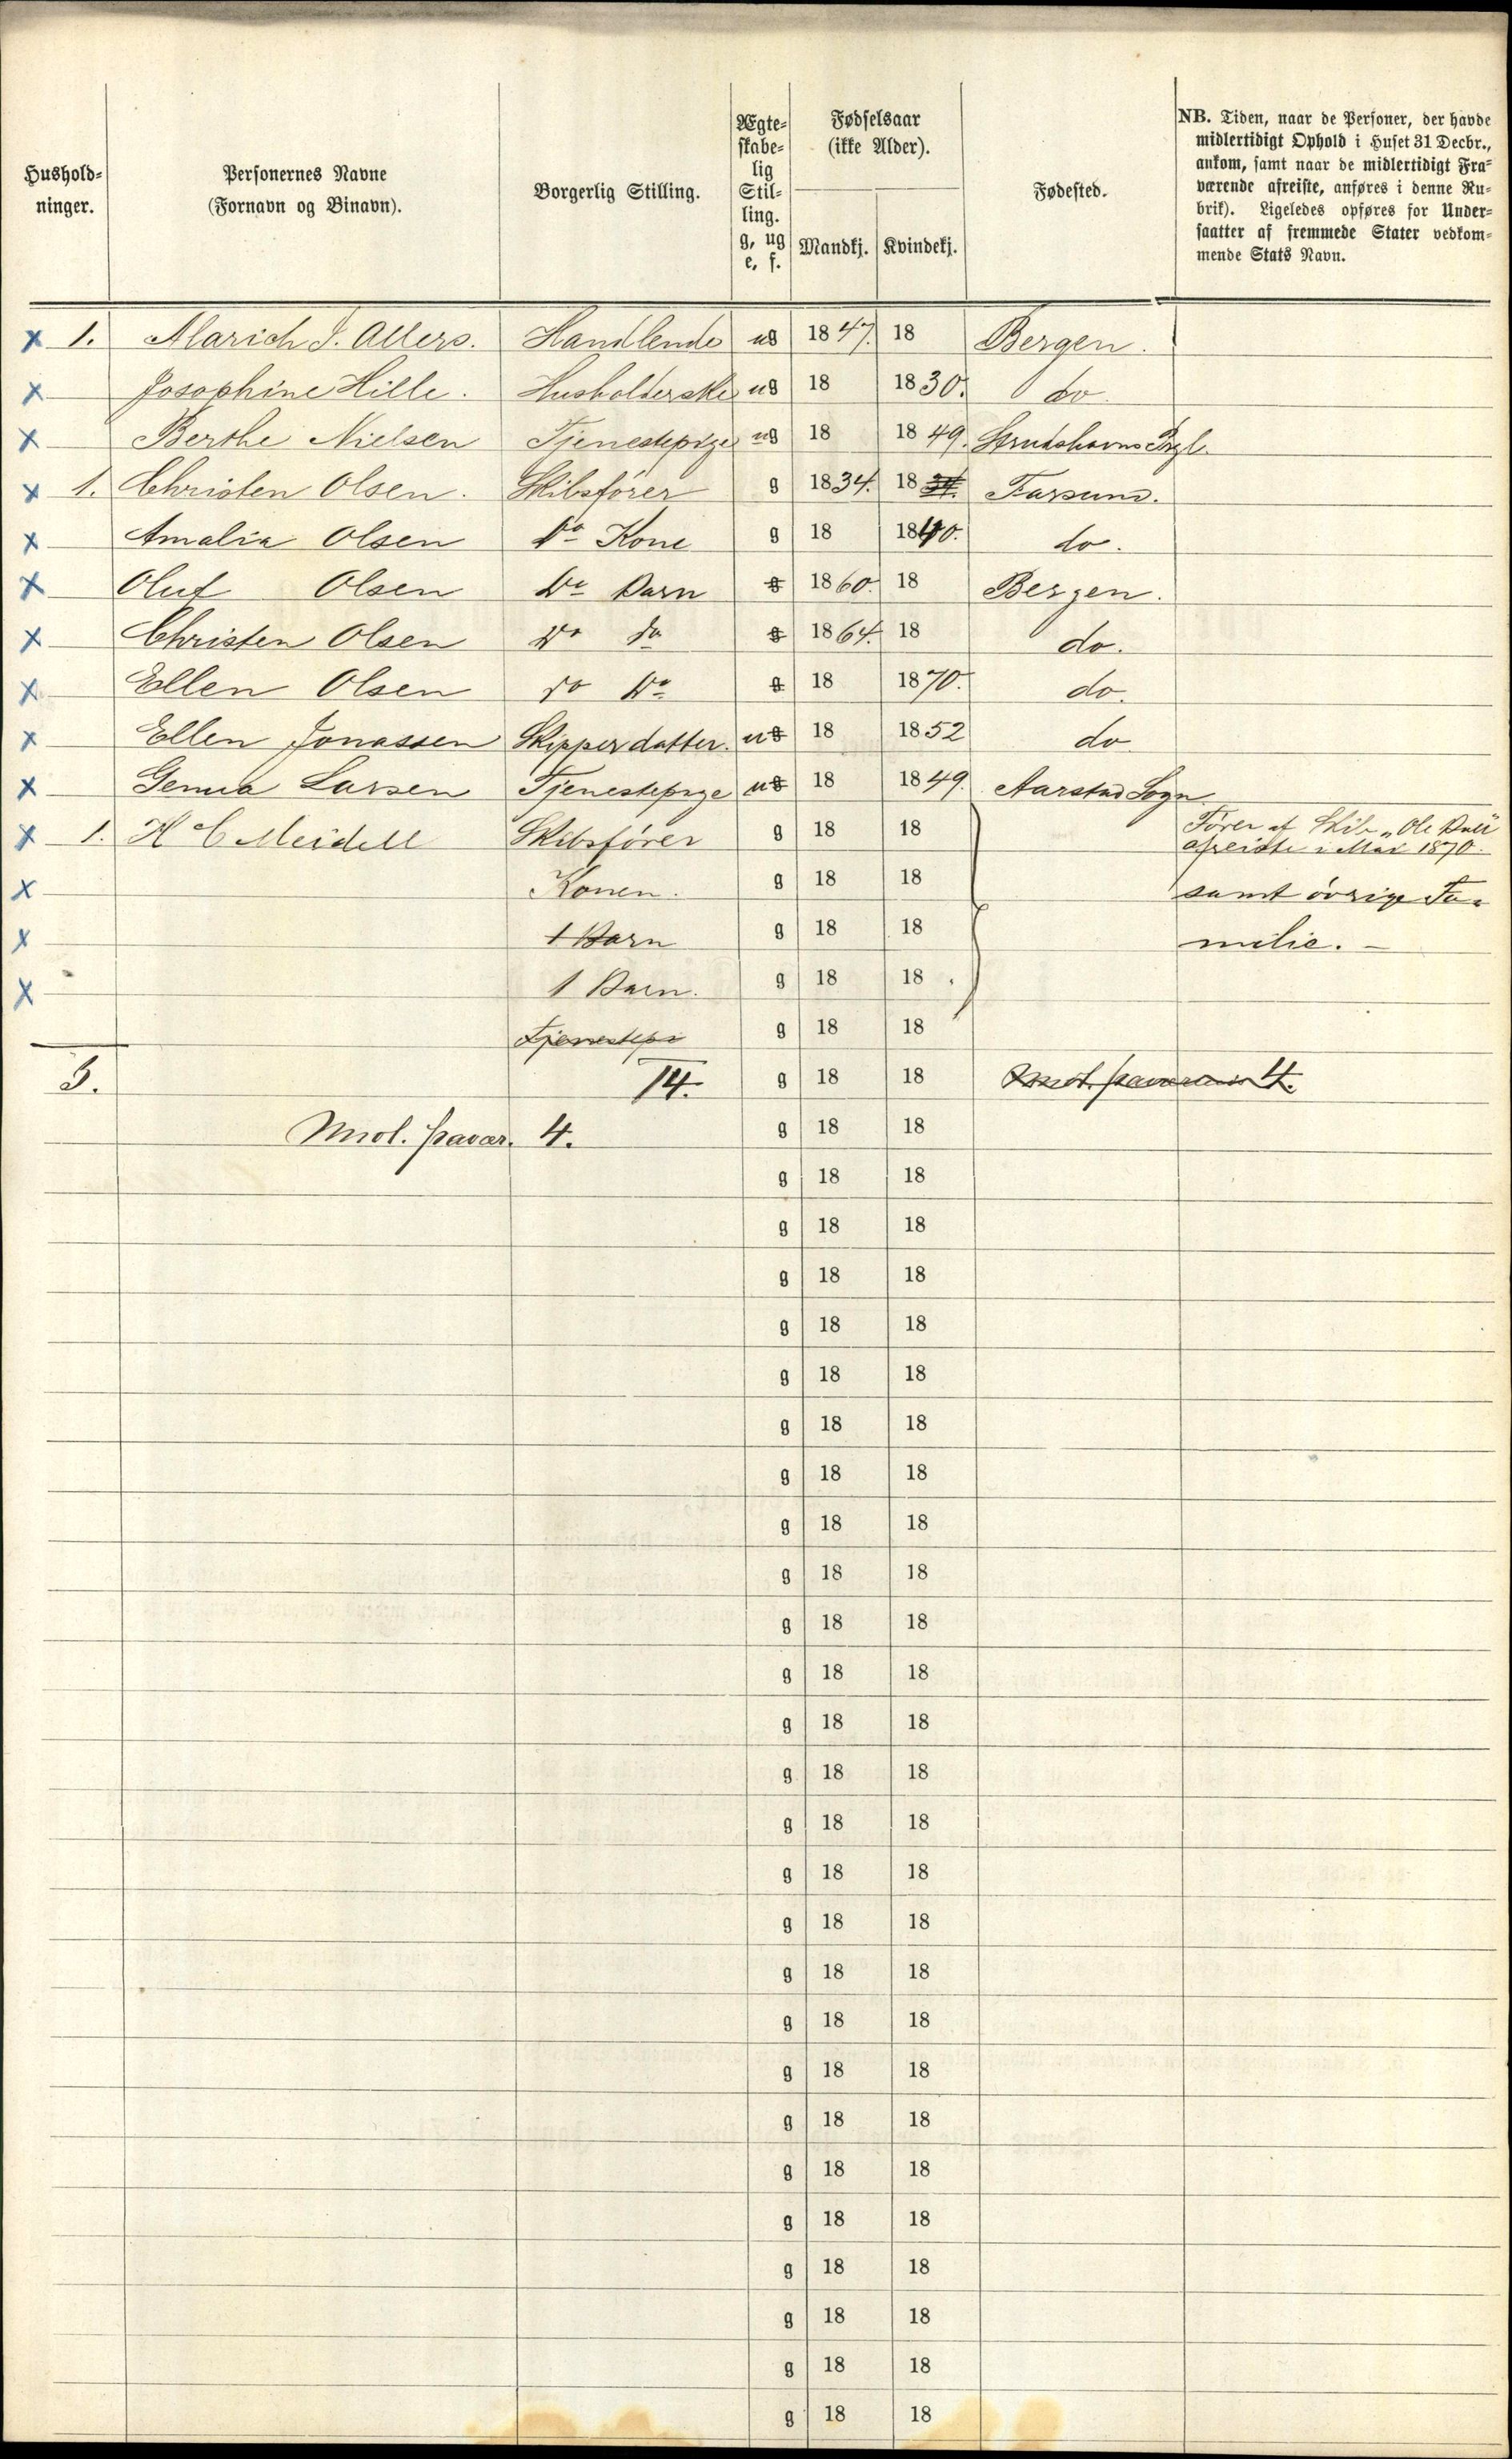 Hushold-
ninger.
Personernes Navne
(Fornavn og Binavn).
Borgerlig Stilling.
Ægte-
skabe-
lig
Stil-
ling.
g, ug
e, f.
Fødselsaar
(ikke Alder).
Mandkj. Kvindekj.
Fødested.
NB. Tiden, naar de Personer, der havde
midlertidigt Ophold i Huset 31 Decbr.,
ankom, samt naar de midlertidigt Fra-
værende afreiste, anføres i denne Ru-
brik). Ligeledes opføres for Under-
saatter af fremmede Stater vedkom-
mende Stats Navn.
x 1. Alarich J. Allers. Handlende ug 1847. 18 Bergen.
x Josephine Hille. Husholderske ug 18 1830. do.
x Berthe Nielsen Tjenestepige ug 18 1849. Strudshavns Prgl.
x 1. Christen Olsen. Skibsfører g 1834. 18 34. Farsund.
x Amalia Olsen Do Kone g 18 1840. do.
x Oluf Olsen Do Barn g 1860. 18 Bergen.
x Christen Olsen Do do g 1864. 18 do.
x Ellen Olsen do Do g 18 1870. do.
x Ellen Jonassen Skipperdatter. ug 18 1852 do
x Larsen Tjenestepige ug 18 1849. Aarstad Sogn
x 1. H C Meidell Skibsfører g 18 18 Fører af Skib „Ole Bull"
afreiste i Mai 1870.
x Konen. g 18 18 samt øvrige Fa-
x 1 Barn g 18 18 milie. –
x 1 Barn. g 18 18
Tjenestepi g 18 18
3. 14. g 18 18 4.
Midl. fravær. 4. g 18 18
g 18 18
g 18 18
g 18 18
g 18 18
g 18 18
g 18 18
g 18 18
g 18 18
g 18 18
g 18 18
g 18 18
g 18 18
g 18 18
g 18 18
g 18 18
g 18 18
g 18 18
g 18 18
g 18 18
g 18 18
g 18 18
g 18 18
g 18 18
g 18 18
g 18 18
g 18 18